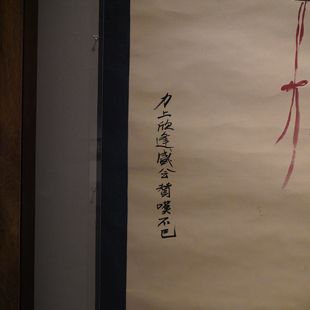 力上欣逢盛会贊嘆不巴